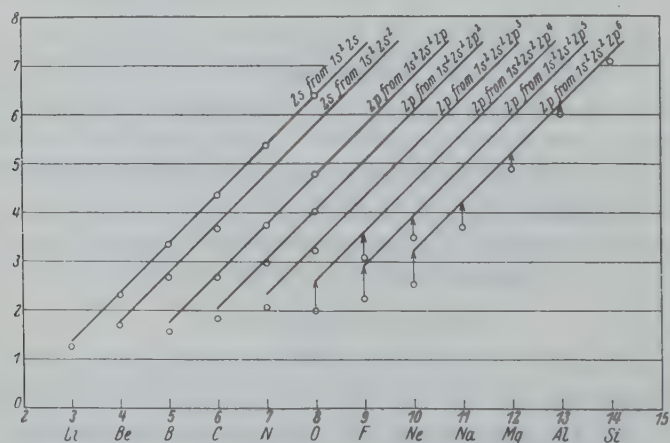 8
7
6
5
4
3
2
1
0
2s from 1s² 2s
2s from 1s² 2s²
2p from 1s² 2s² 2p
2p from 1s² 2s² 2p²
2p from 1s² 2s² 2p³
2p from 1s² 2s² 2p⁴
2p from 1s² 2s² 2p⁵
2p from 1s² 2s² 2p⁶
2 3 4 5 6 7 8 9 10 11 12 13 14 15
Li Be B C N O F Ne Na Mg Al Si